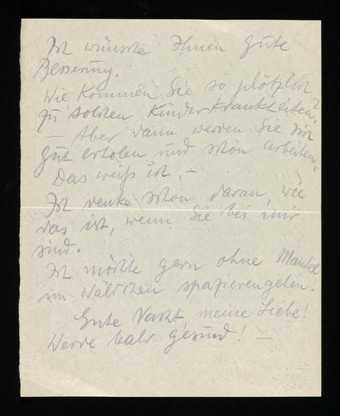 Ich wünsche Ihnen gute
Besserung.
Wie kommen Sie so plötzlich
zu solchen Kinderkrankheiten?
– Aber dann werden Sie sich
gut erholen und schön arbeiten.
Das weiß ich, –
Ich denke schon daran, wie
das ist, wenn Sie bei mir
sind.
Ich möchte gern ohne Mantel
im Wäldchen spazierengehen.
Gute Nacht, meine Liebe!
Werde bald gesund! –